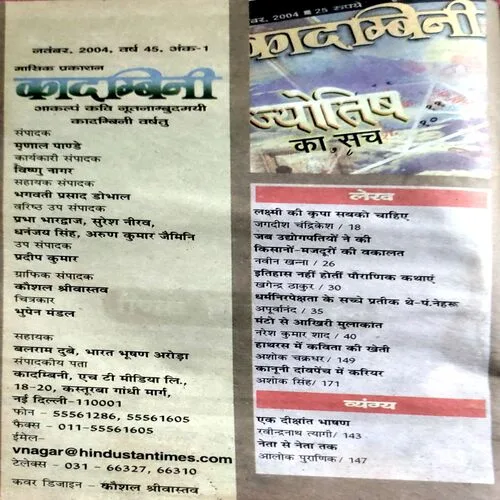 नवंबर, 2004, वर्ष 45, अंक-1
मासिक प्रकाशन
कादम्बिनी
आकल्पं कवि नूतनाम्बुदमयी
कादम्बिनी वर्षतु
संपादक
मृणाल पाण्डे
कार्यकारी संपादक
विष्णु नागर
सहायक संपादक
भगवती प्रसाद डोभाल
वरिष्ठ उप संपादक
प्रभा भारद्वाज, सुरेश नीरव,
धनंजय सिंह, अरुण कुमार जैमिनि
उप संपादक
प्रदीप कुमार
ग्राफिक संपादक
कौशल श्रीवास्तव
चित्रकार
भुपेन मंडल
सहायक
बलराम दुबे, भारत भूषण अरोड़ा
संपादकीय पता
कादम्बिनी, एच टी मीडिया लि.,
18-20, कस्तूरबा गांधी मार्ग,
नई दिल्ली-110001
फोन - 55561286, 55561605
फैक्स - 011-55561605
ईमेल-
vnagar@hindustantimes.com
टेलेक्स - 031 - 66327, 66310
कवर डिजाइन - कौशल श्रीवास्तव
बर, 2004 ■ 25 रुपये
कादम्बिनी
ज्योतिष
का सच
लेख
लक्ष्मी की कृपा सबको चाहिए
जगदीश चंद्रिकेश / 18
जब उद्योगपतियों ने की
किसानों-मजदूरों की वकालत
नवीन खन्ना / 26
इतिहास नहीं होतीं पौराणिक कथाएं
खगेन्द्र ठाकुर / 30
धर्मनिरपेक्षता के सच्चे प्रतीक थे-पं.नेहरू
अपूर्वानंद / 35
मंटो से आखिरी मुलाकांत
नरेश कुमार शाद / 40
हाथरस में कविता की खेती
अशोक चक्रधर / 149
कानूनी दांवपेंच में करियर
अशोक सिंह / 171
व्यंग्य
एक दीक्षांत भाषण
रवीन्द्रनाथ त्यागी / 143
नेता से नेता तक
आलोक पुराणिक / 147